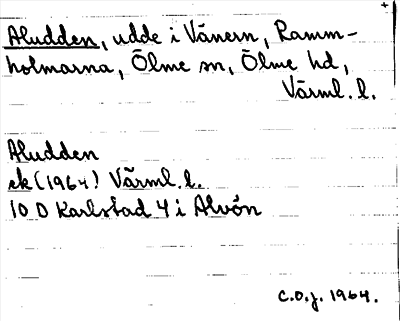 Aludden, udde i Vänern, Ramm-
holmarna, Ölme sn, Ölme hd,
Värml. l.
Aludden
ek (1964) Värml. l.
10 D Karlstad 4 i Alvön
C.O.J. 1964.